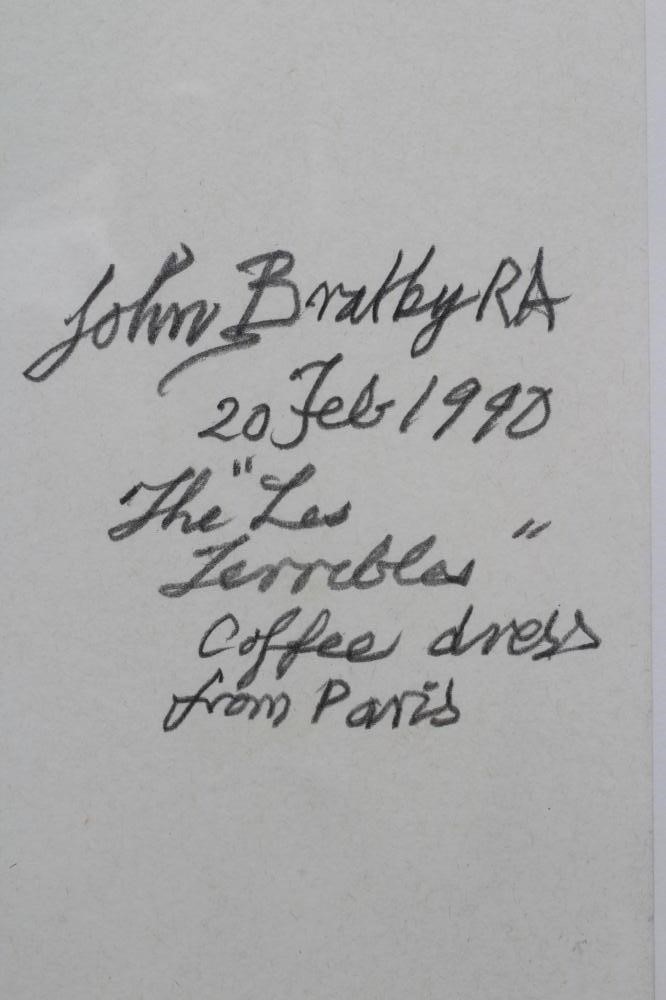 John Bratby RA
20 Feb 1990
The "Les
Terribles"
Coffee dress
from Paris